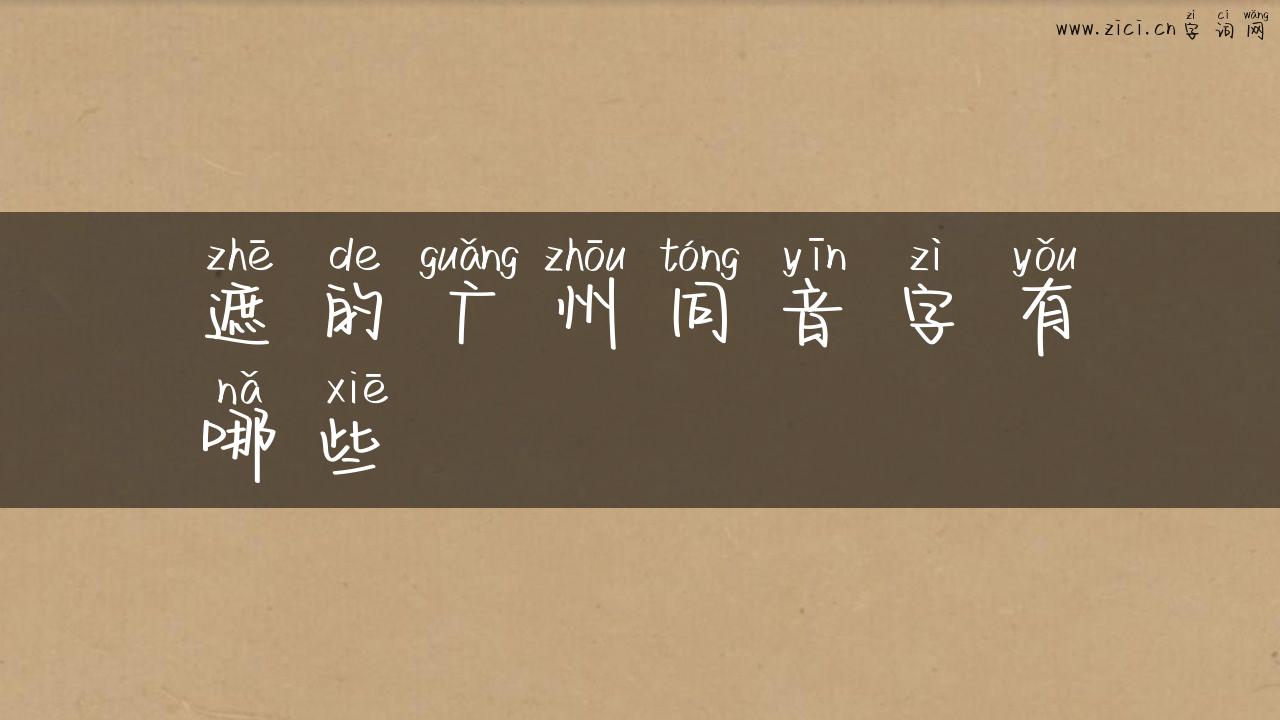 zì cí wǎng
www.zici.cn 字 词 网
zhē de guǎng zhōu tóng yīn zì yǒu
遮 的 广 州 同 音 字 有
nǎ xiē
哪 些